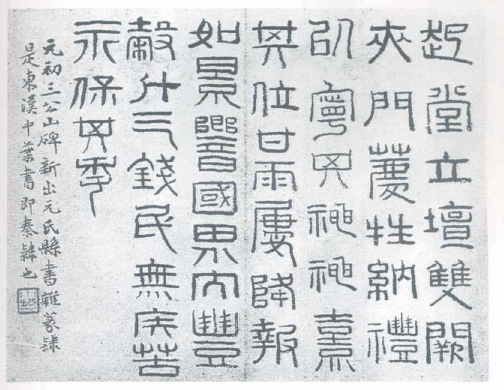 起堂立壇雙闕
夾門薦牲納禮
㠯寧其神神熹
其位甘雨屢降報
如景響國界大豐
穀斗三錢民無疾苦
永保其年
元初三公山碑新出元氏縣書雜篆隸
是東漢中葉書即秦隸也